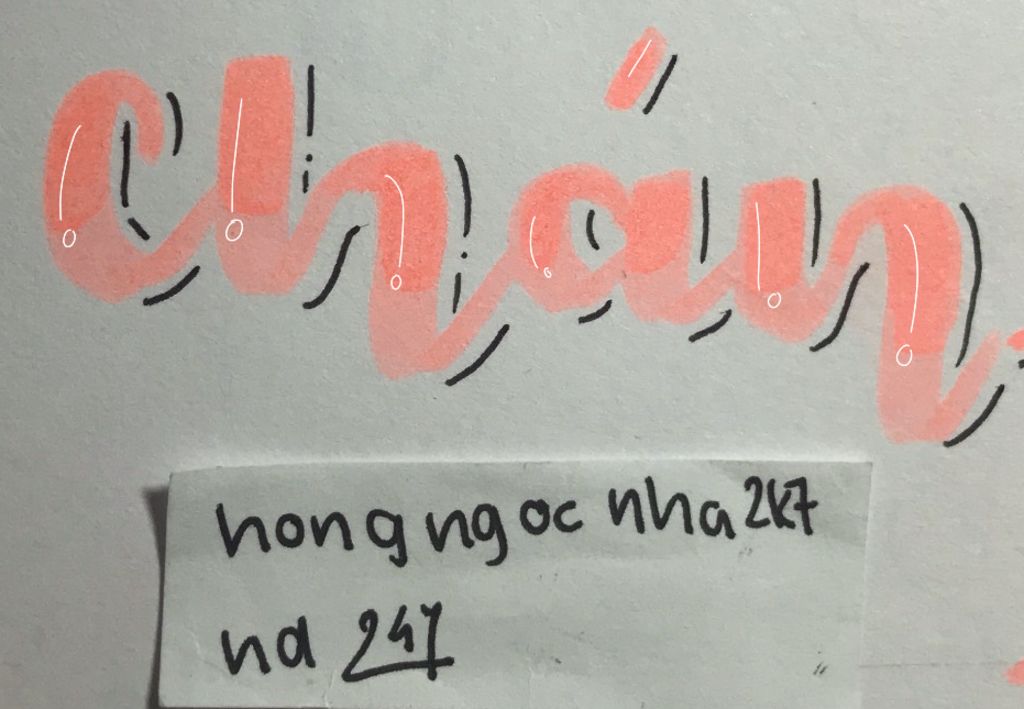 Chán
hongngoc nha2k7
na 247